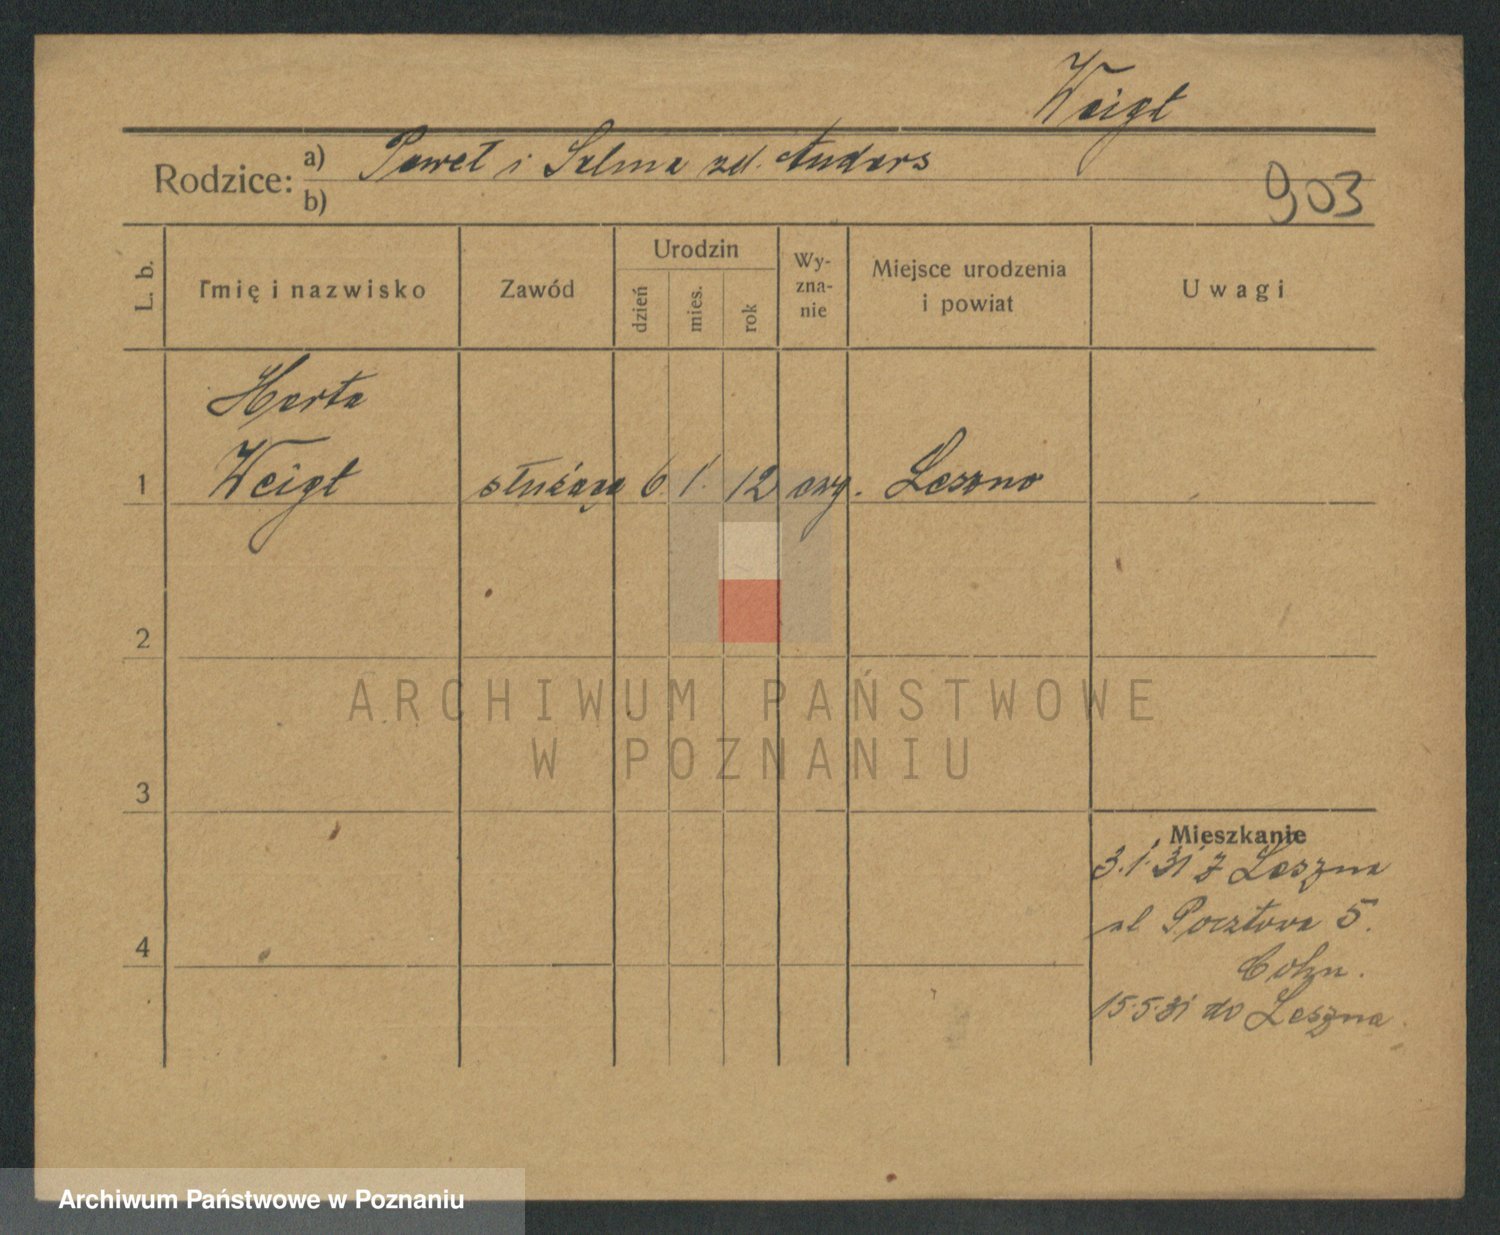 Weigt
Rodzice: a) Paweł i Selma zd. Anders
903
b)
L. b.
Imię i nazwisko
Zawód
Urodzin
dzień
mies.
rok
Wy-
zna-
nie
Miejsce urodzenia
i powiat
Uwagi
Herta
1 Weigt służąca 6. 1. 12 ewg. Leszno
2
ARCHIWUM PAŃSTWOWE
W POZNANIU
3
Mieszkanie
3.1.31 z Leszna
ul Pocztowa 5.
4
15.5.31 do Leszna.
Archiwum Państwowe w Poznaniu